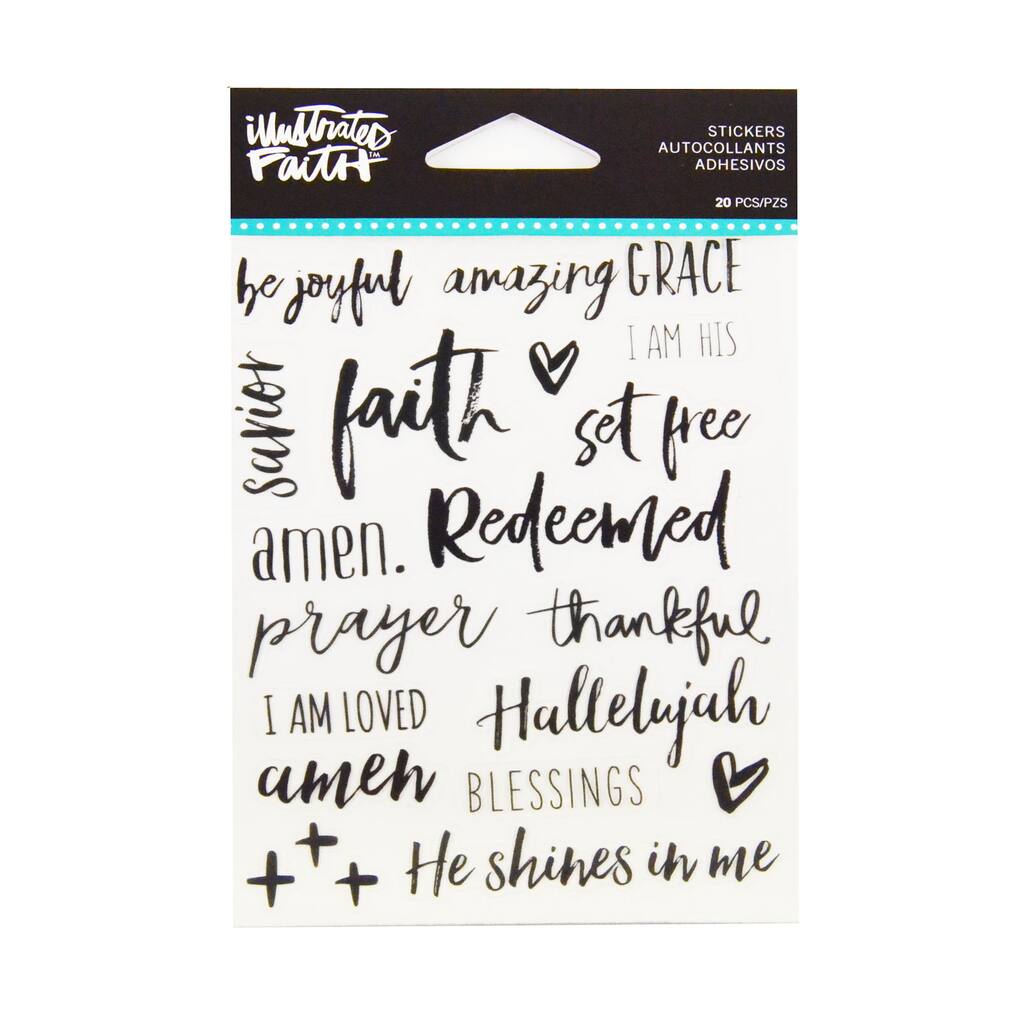 illustrated
FAITH™
STICKERS
AUTOCOLLANTS
ADHESIVOS
20 PCS/PZS
be joyful
amazing GRACE
I AM HIS
savior
faith
set free
Redeemed
amen.
prayer
thankful
I AM LOVED
Hallelujah
amen
BLESSINGS
He shines in me